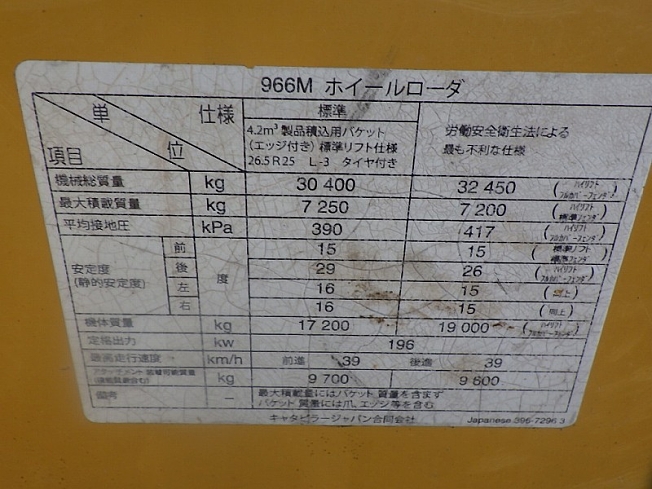 966M ホイールローダ
単 位 仕様
項目
標準
4.2m³ 製品積込用バケット
(エッジ付き) 標準リフト仕様
26.5 R 25 L-3 タイヤ付き
労働安全衛生法による
最も不利な仕様
機械総質量 kg 30 400 32 450 (ハイリフト フルカバーフェンダ)
最大積載質量 kg 7 250 7 200 (ハイリフト 標準フェンダ)
平均接地圧 kPa 390 417 (ハイリフト フルカバーフェンダ)
安定度
(静的安定度)
度
前 15 15 (標準リフト 標準フェンダ)
後 29 26 (ハイリフト フルカバーフェンダ)
左 16 15 (同上)
右 16 15 (同上)
機体質量 kg 17 200 19 000 (ハイリフト フルカバーフェンダ)
定格出力 kw 196
最高走行速度 km/h 前進 39 後進 39
アタッチメント装着可能質量
(積載質量含む) kg 9 700 9 600
備考 －
最大積載量にはバケット質量を含まず
バケット質量には爪、エッジ等を含む
キャタピラージャパン合同会社
Japanese 396-7296 3